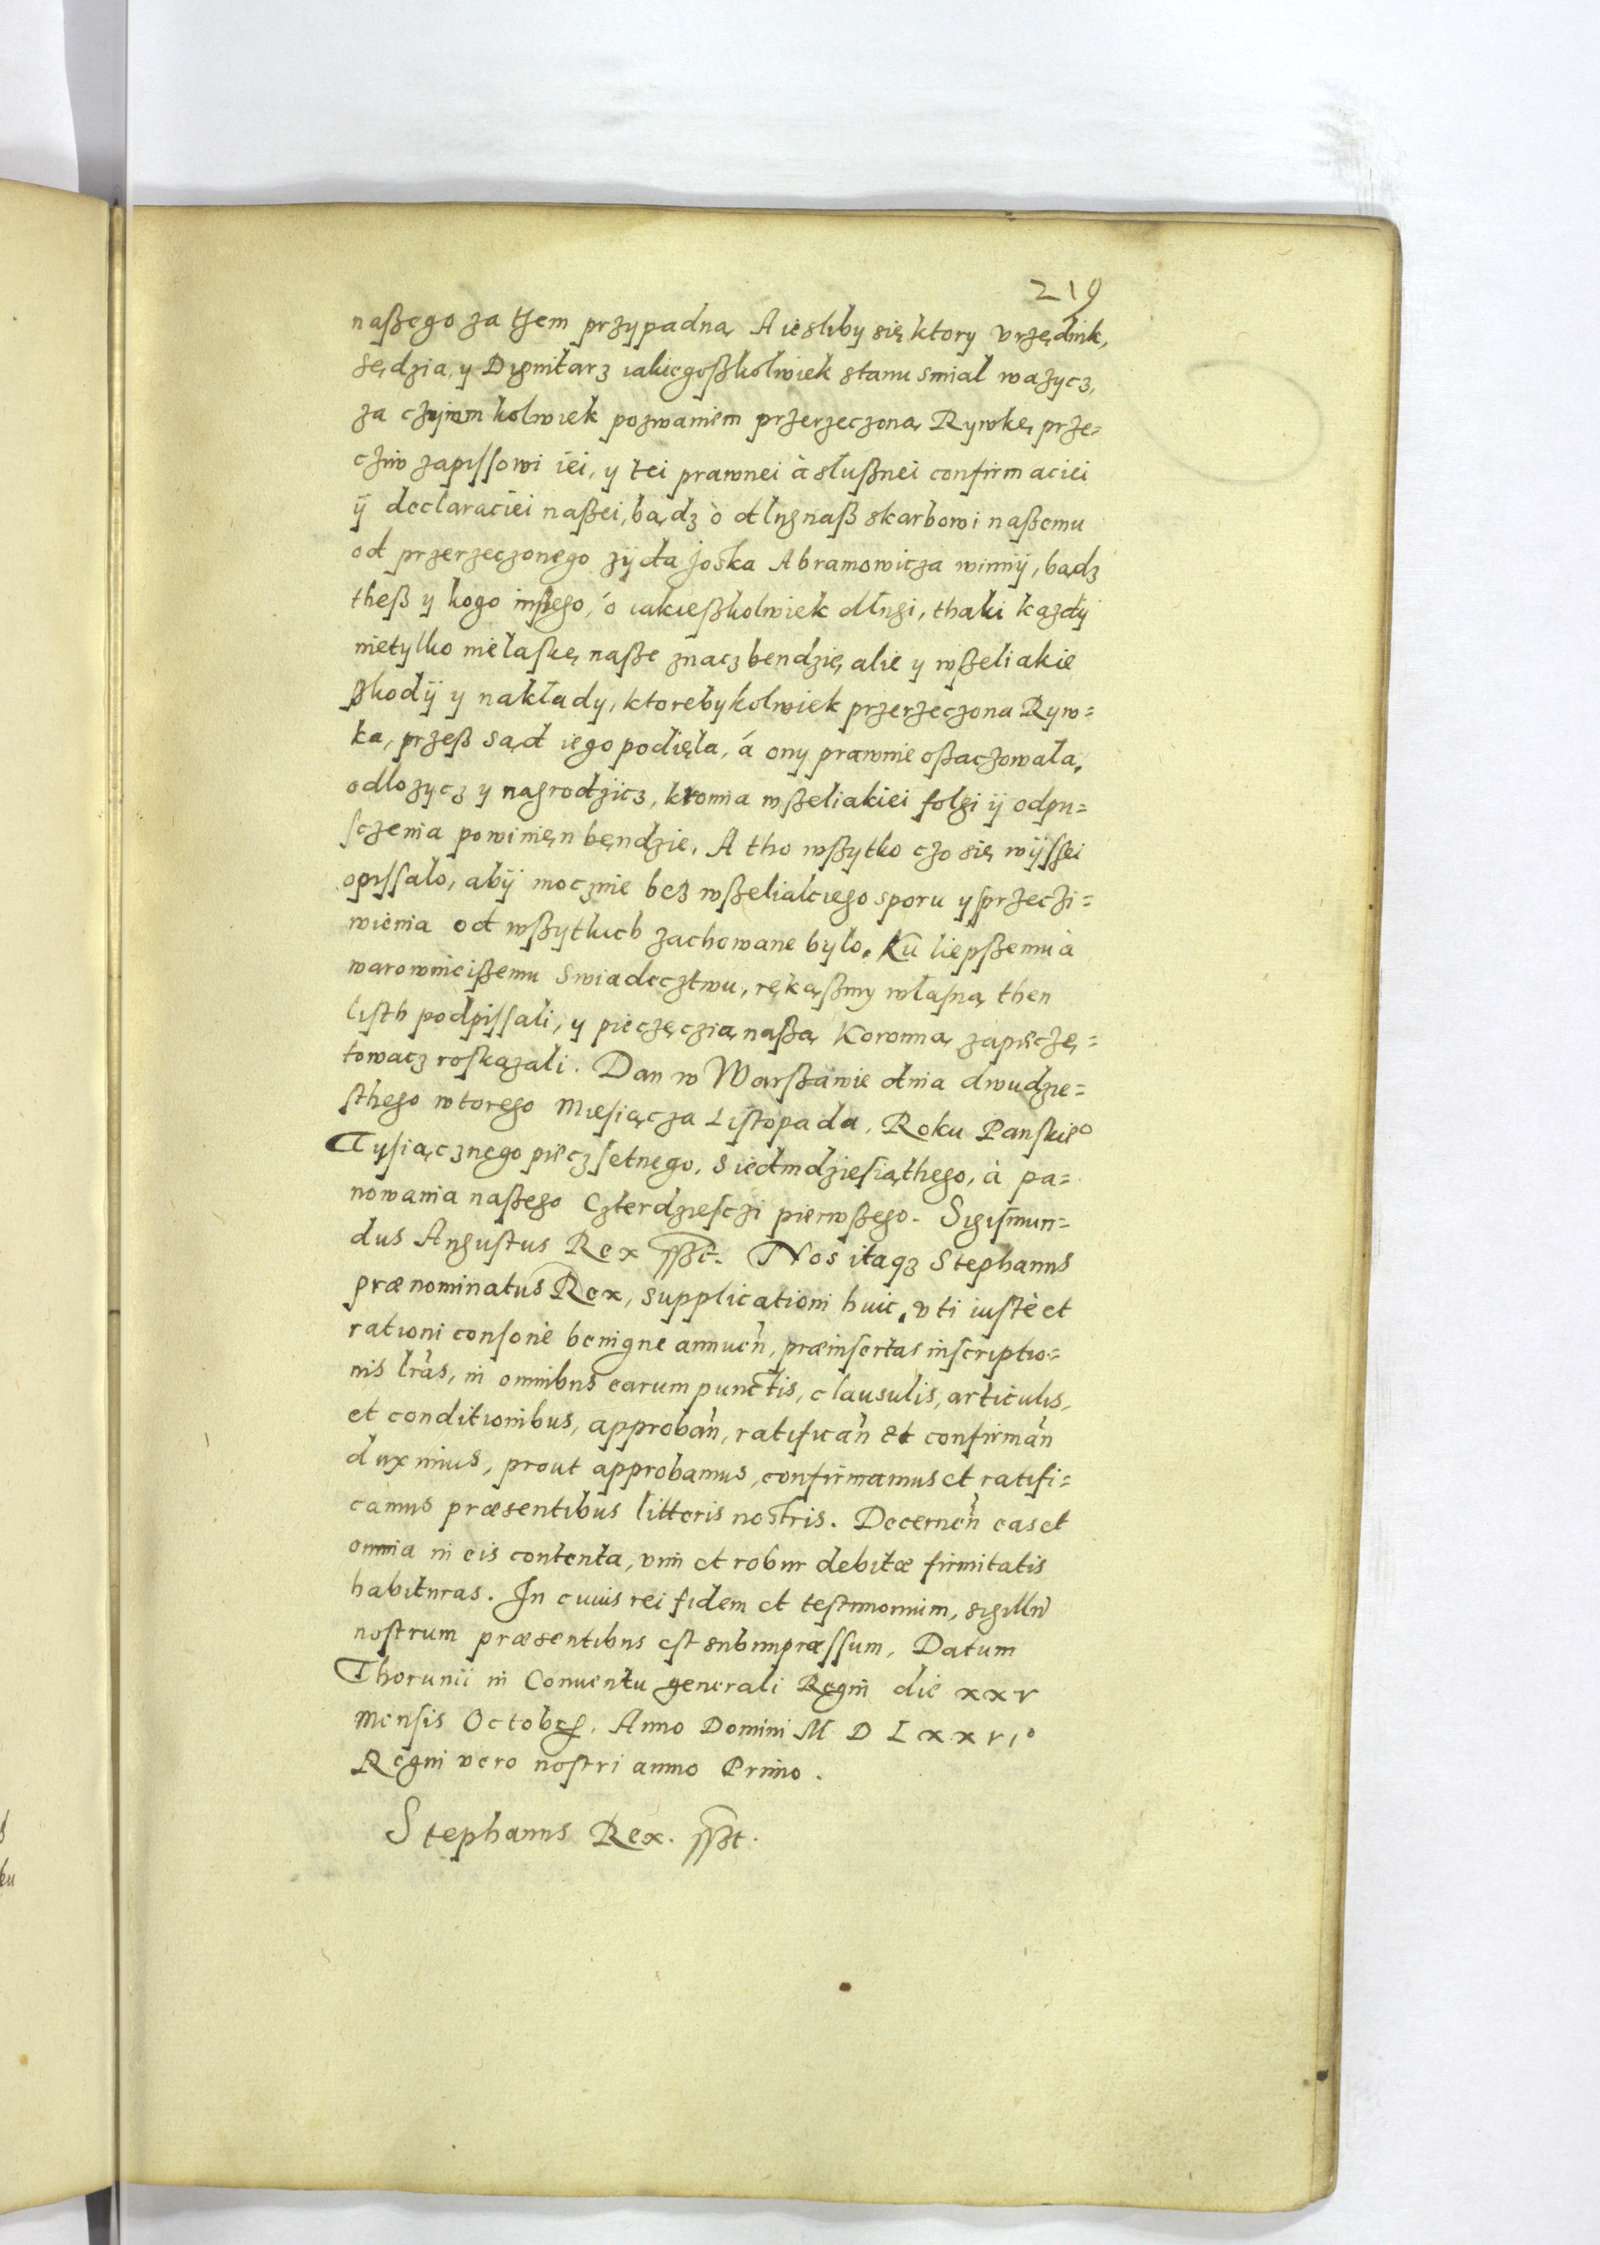 219
naßego za tzem przypadną A iesliby się ktory vrzędnik,
sędzia, y Dignitarz iakiegoßkolwiek stanu smial wazycz,
za czyimkolwiek pozwaniem przerzeczoną Rywkę, prze=
cziw zapissowi iei, y tei prawnei à słußnei confirmaciei
ÿ declaraciei naßei, bądz ò dlug naß skarbowi naßemu
od przerzeczonego zÿda Joska Abramowicza winnÿ, bądz
theß y kogo inßego, ò iakießkolwiek dlugi, thaki kazdÿ
nietylko nielaskę naße znacz bendzie, alie y wßeliakie
ßkodÿ y nakłady, ktorebykolwiek przerzeczona Ryw=
ka, przeß sąd iego podięla, á ony prawnie oßaczowała,
odlozycz y nagrodzicz, kromia wßeliakiei folgi ÿ odpu=
sczenia powinięn bęndzie. A tho wßytko czo się wÿssei
opissalo, abÿ mocznie bez wßeliakiego sporu y sprzeczi=
wienia od wßytkich zachowane bylo. Ku liepßemu à
warownieißemu swiadecztwu, rękąßmy własną then
listh podpissali, y pieczęczią naßą Koronną zapieczę=
towacz roskazali. Dan w Warßawie dnia dwudzie=
sthego wtorego Miesiącza Listopada, Roku Panskie°
Tysiącznego pięczsetnego, siedmdziesiąthego, à pa=
nowania naßego Czterdziesczi pierwßego. Sigismun=
dus Augustus Rex ßßt. Nos itaqz Stephanus
prænominatus Rex, supplicationi huic, vti iustè et
rationi consonè benigne annueñ, præinsertas inscriptio=
nis lrãs, in omnibus earum punctis, clausulis, articulis,
et conditionibus, approbañ, ratificañ et confirmañ
duximus, prout approbamus, confirmamus et ratifi=
camus præsentibus litteris nostris. Decerneñ eas et
omnia in eis contenta, vim et robur debitæ firmitatis
habituras. In cuius rei fidem et testimonium, sigillũ
nostrum præsentibus est subimpræssum. Datum
Thorunii in Conuentu generali Regni die xxv
Mensis Octobr. Anno Domini M D L x x v i°
Regni vero nostri anno Primo.
Stephanus Rex. ßßt.